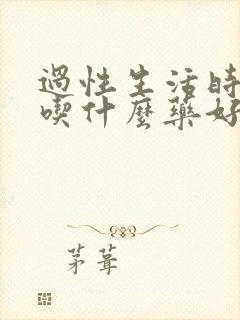 過性生活時
喫什麼藥好
茅葺